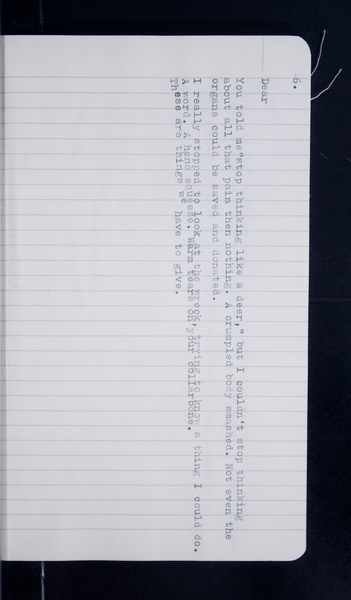 6.
Dear
You told me "stop thinking like a deer," but I couldn't stop thinking
about all that pain then nothing. A crumpled body smashed. Not even the
organs could be saved and donated.
I really stopped to look at the wreck, trying to know a thing I could do.
A word. A hand squeeze. Warm tears on your collarbone.
These are things we have to give.